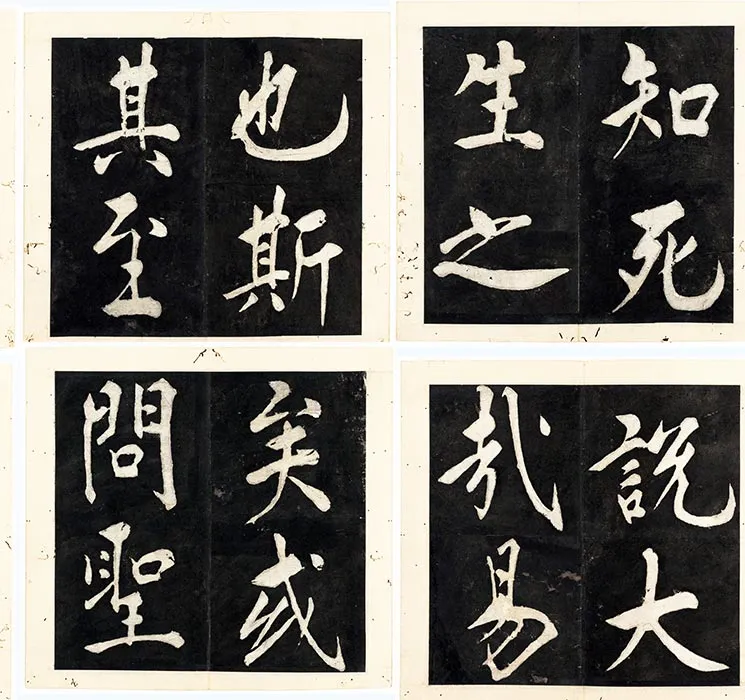 知死
生之
說大
哉易
也斯
其至
矣或
問聖